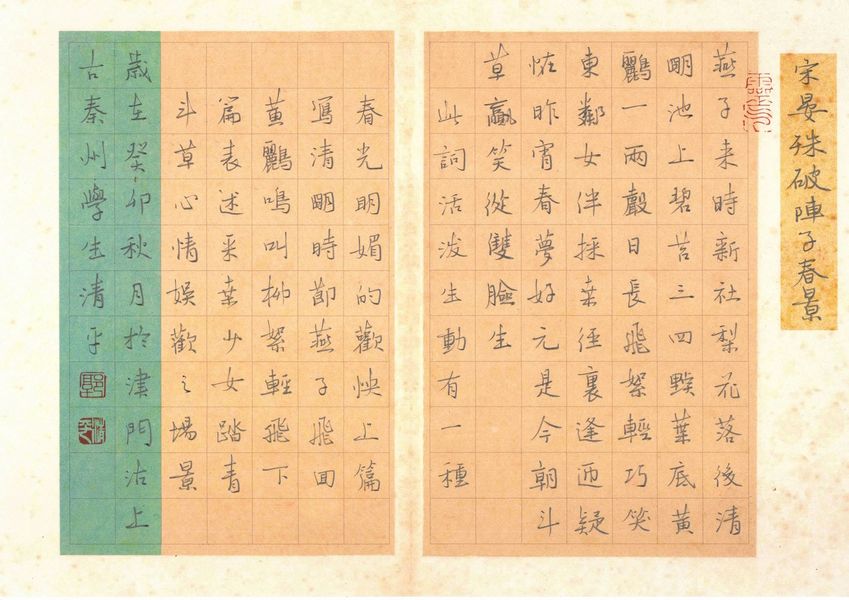 宋晏殊破陣子春景
燕子来時新社梨花落後清
明池上碧苔三四點葉底黃
鸝一兩聲日長飛絮輕巧笑
東鄰女伴採桑徑裏逢迎疑
恠昨宵春夢好元是今朝斗
草贏笑從雙臉生
此詞活泼生動有一種
春光明媚的歡快上篇
寫清明時節燕子飛回
黃鸝鳴叫柳絮輕飛下
篇表述采桑少女踏青
斗草心情娱歡之場景
歲在癸卯秋月於津門沽上
古秦州學生清平